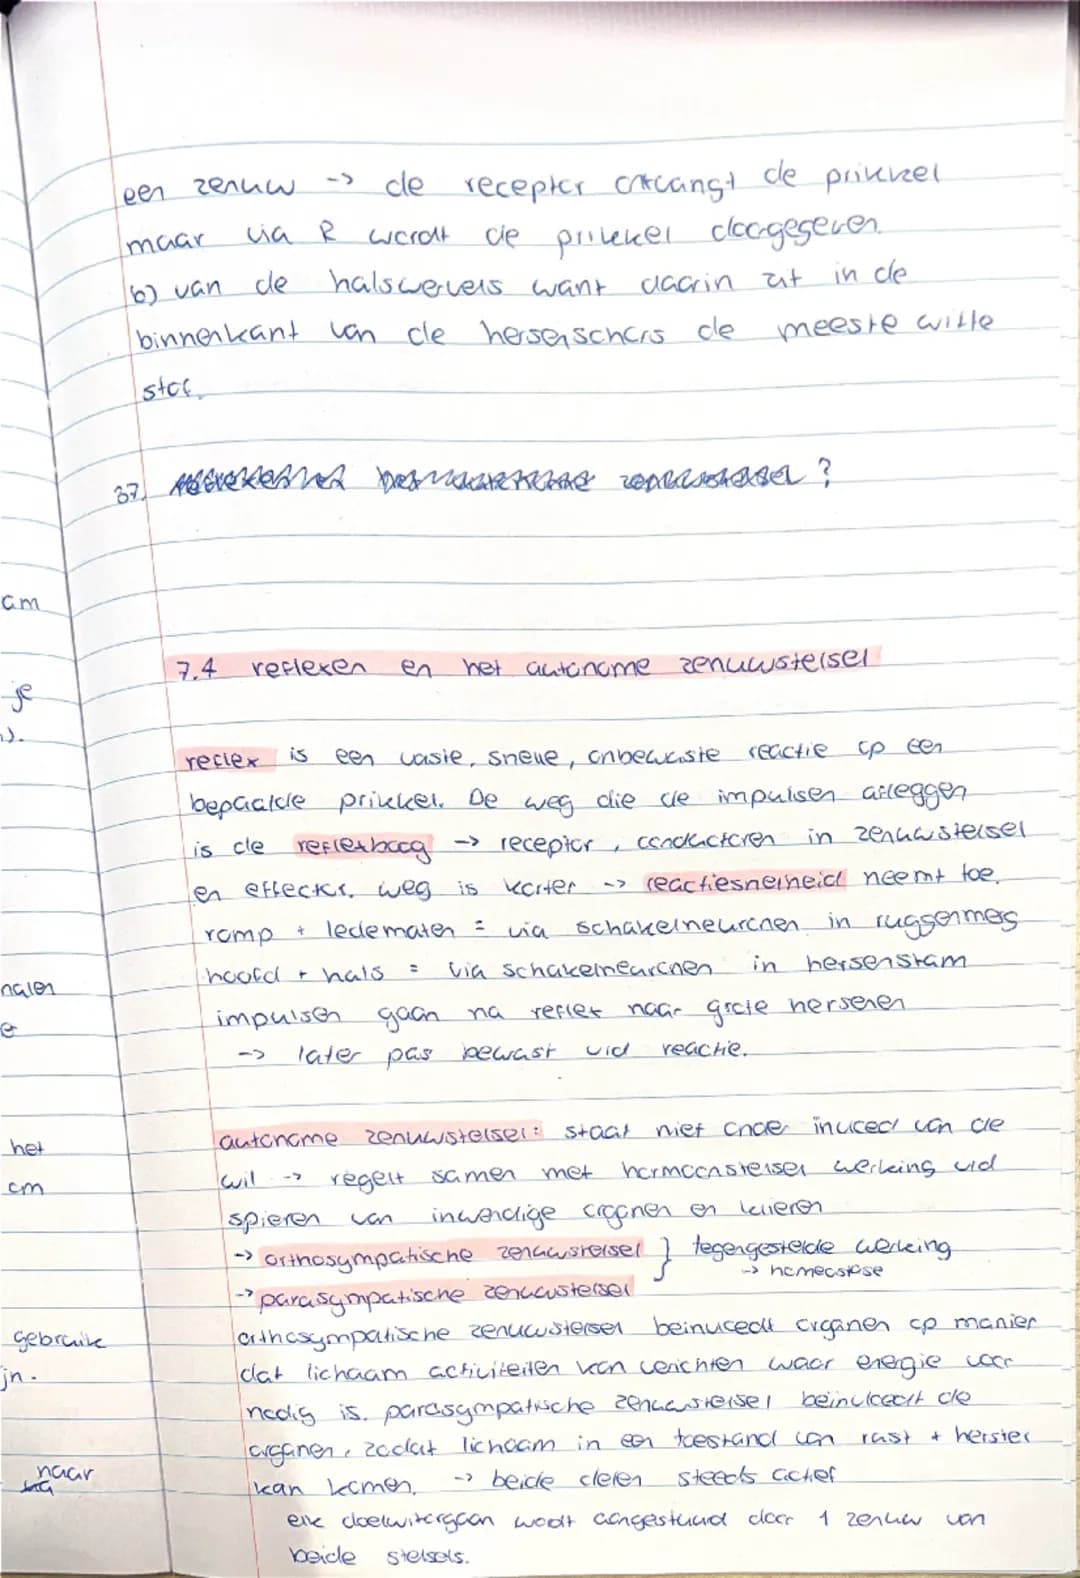 een zenuw -> de receptor ontvangt de prikkel
maar via R wordt de prikkel doorgegeven.
b) van de halswervels want daarin zit in de
binnenkant van de hersenschors de meeste witte
stof.
37. ?
7.4 reflexen en het autonome zenuwstelsel
reflex is een vaste, snelle, onbewuste reactie op een
bepaalde prikkel. De weg die de impulsen afleggen
is de reflexboog -> receptor, conductoren in zenuwstelsel
en effector. weg is korter -> reactiesnelheid neemt toe.
romp + ledematen = via schakelneuronen in ruggenmerg
hoofd + hals = via schakelneuronen in hersenstam
impulsen gaan na reflex naar grote hersenen
-> later pas bewust v/d reactie.
autonome zenuwstelsel: staat niet onder invloed van de
wil -> regelt samen met hormoonstelsel werking v/d
spieren van inwendige organen en klieren
-> orthosympatische zenuwstelsel } tegengestelde werking
-> homeostase
-> parasympatische zenuwstelsel
orthosympatische zenuwstelsel beinvloedt organen op manier
dat lichaam activiteiten kan verichten waar energie voor
nodig is. parasympatische zenuwstelsel beinvloedt de
organen, zodat lichaam in een toestand van rust + herstel
kan komen. -> beide delen steeds actief
elk doelwitorgaan wordt aangestuurd door 1 zenuw van
beide stelsels.
am
je
nalen
e
het
om
gebruik
jn.
naar